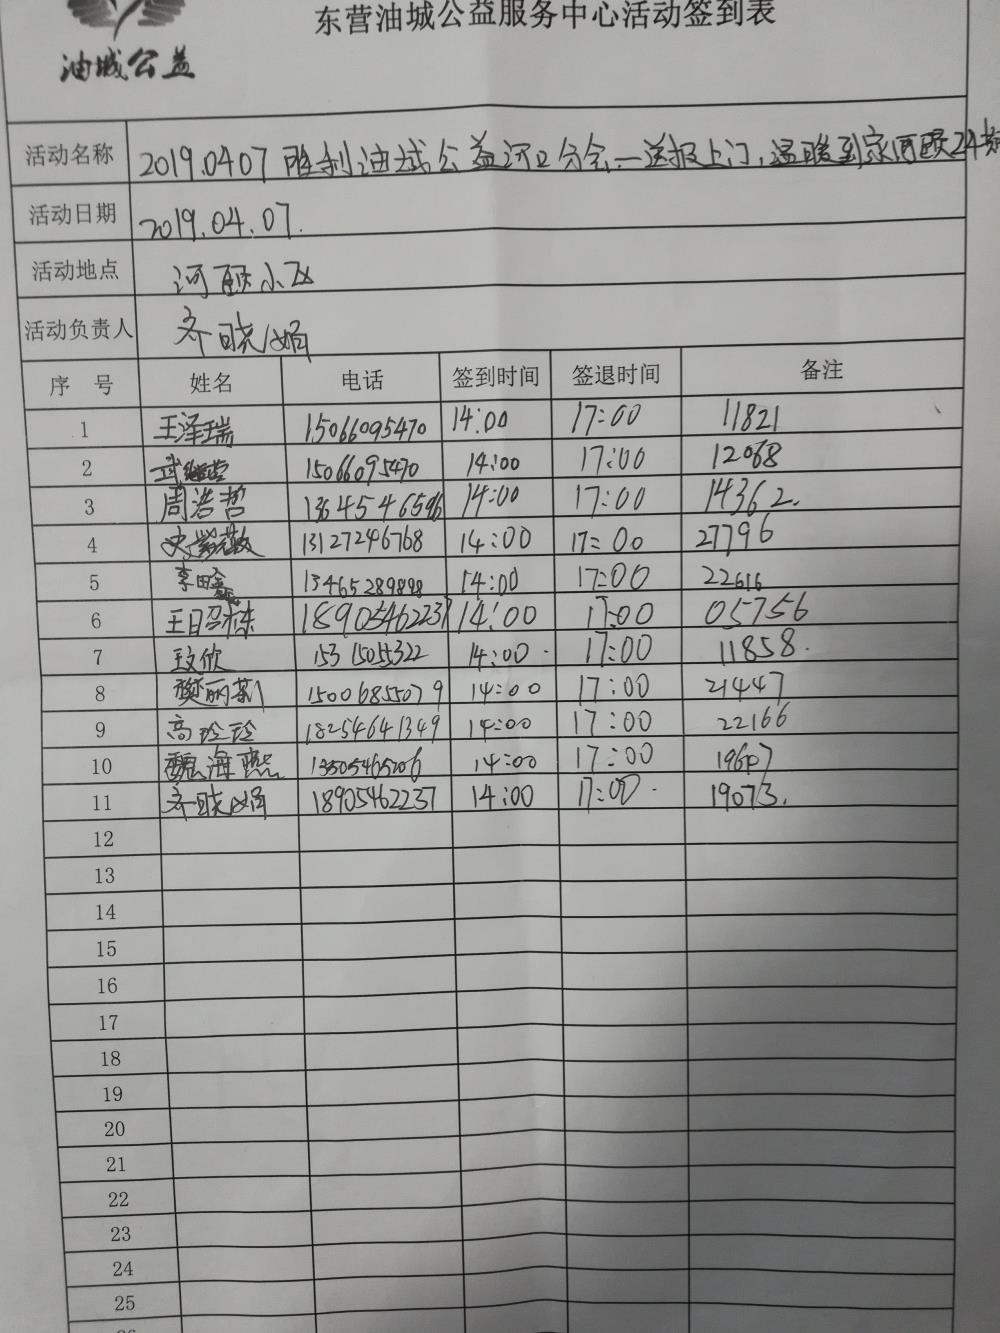 东营油城公益服务中心活动签到表
油城公益
活动名称 2019.0407 胜利油城公益河口分会—送报上门,温暖到家河颐24
活动日期 2019.04.07.
活动地点 河颐小区
活动负责人 齐晓娟
序 号 姓名 电话 签到时间 签退时间 备注
1 王泽瑞 15066095470 14:00 17:00 11821
2 武 15066095470 14:00 17:00 12068
3 周浩哲 13645465 14:00 17:00 14362.
4 史 敏 13127246768 14:00 17:00 27796
5 李 13465289898 14:00 17:00 22616
6 王日召栋 18905462237 14:00 17:00 05756
7 玟欣 15315055322 14:00 17:00 11858.
8 樊丽 15006855079 14:00 17:00 21447
9 高玲玲 18254641349 14:00 17:00 22166
10 魏海燕 13505465206 14:00 17:00 19617
11 齐晓娟 18905462237 14:00 17:00 19073.
12
13
14
15
16
17
18
19
20
21
22
23
24
25
26